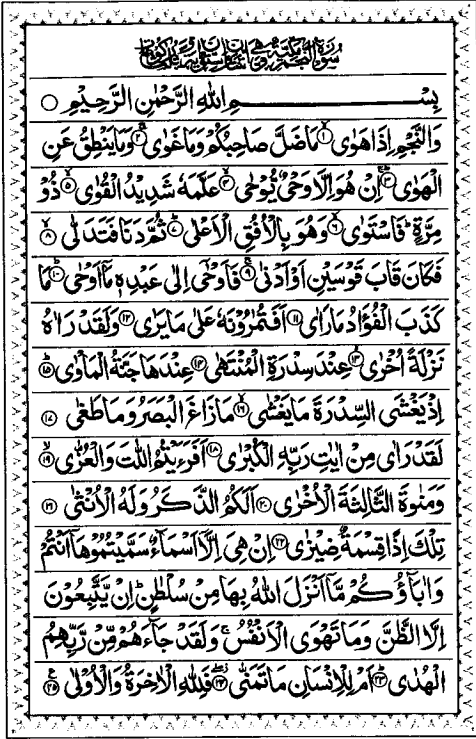 بِسْمِ اللهِ الرَّحْمٰنِ الرَّحِيْمِ ○
وَالنَّجْمِ اِذَا هَوٰى ۙ﴿۱﴾ مَا ضَلَّ صَاحِبُكُمْ وَمَا غَوٰى ۚ﴿۲﴾ وَمَا يَنْطِقُ عَنِ
الْهَوٰى ؕ﴿۳﴾ اِنْ هُوَ اِلَّا وَحْىٌ يُّوْحٰى ۙ﴿۴﴾ عَلَّمَهٗ شَدِيْدُ الْقُوٰى ۙ﴿۵﴾ ذُوْ
مِرَّةٍ ؕ فَاسْتَوٰى ۙ﴿۶﴾ وَهُوَ بِالْاُفُقِ الْاَعْلٰى ؕ﴿۷﴾ ثُمَّ دَنَا فَتَدَلّٰى ۙ﴿۸﴾
فَكَانَ قَابَ قَوْسَيْنِ اَوْ اَدْنٰى ۚ﴿۹﴾ فَاَوْحٰۤى اِلٰى عَبْدِهٖ مَاۤ اَوْحٰى ؕ﴿۱۰﴾ مَا
كَذَبَ الْفُؤَادُ مَا رَاٰى ﴿۱۱﴾ اَفَتُمٰرُوْنَهٗ عَلٰى مَا يَرٰى ﴿۱۲﴾ وَلَقَدْ رَاٰهُ
نَزْلَةً اُخْرٰى ۙ﴿۱۳﴾ عِنْدَ سِدْرَةِ الْمُنْتَهٰى ﴿۱۴﴾ عِنْدَهَا جَنَّةُ الْمَاْوٰى ؕ﴿۱۵﴾
اِذْ يَغْشَى السِّدْرَةَ مَا يَغْشٰى ۙ﴿۱۶﴾ مَا زَاغَ الْبَصَرُ وَمَا طَغٰى ﴿۱۷﴾
لَقَدْ رَاٰى مِنْ اٰيٰتِ رَبِّهِ الْكُبْرٰى ﴿۱۸﴾ اَفَرَءَيْتُمُ اللّٰتَ وَالْعُزّٰى ۙ﴿۱۹﴾
وَمَنٰوةَ الثَّالِثَةَ الْاُخْرٰى ﴿۲۰﴾ اَلَكُمُ الذَّكَرُ وَلَهُ الْاُنْثٰى ﴿۲۱﴾
تِلْكَ اِذًا قِسْمَةٌ ضِيْزٰى ﴿۲۲﴾ اِنْ هِىَ اِلَّاۤ اَسْمَآءٌ سَمَّيْتُمُوْهَاۤ اَنْتُمْ
وَاٰبَآؤُكُمْ مَّاۤ اَنْزَلَ اللّٰهُ بِهَا مِنْ سُلْطٰنٍ ؕ اِنْ يَّتَّبِعُوْنَ
اِلَّا الظَّنَّ وَمَا تَهْوَى الْاَنْفُسُ ۚ وَلَقَدْ جَآءَهُمْ مِّنْ رَّبِّهِمُ
الْهُدٰى ؕ﴿۲۳﴾ اَمْ لِلْاِنْسَانِ مَا تَمَنّٰى ۖ﴿۲۴﴾ فَلِلّٰهِ الْاٰخِرَةُ وَالْاُوْلٰى ﴿۲۵﴾